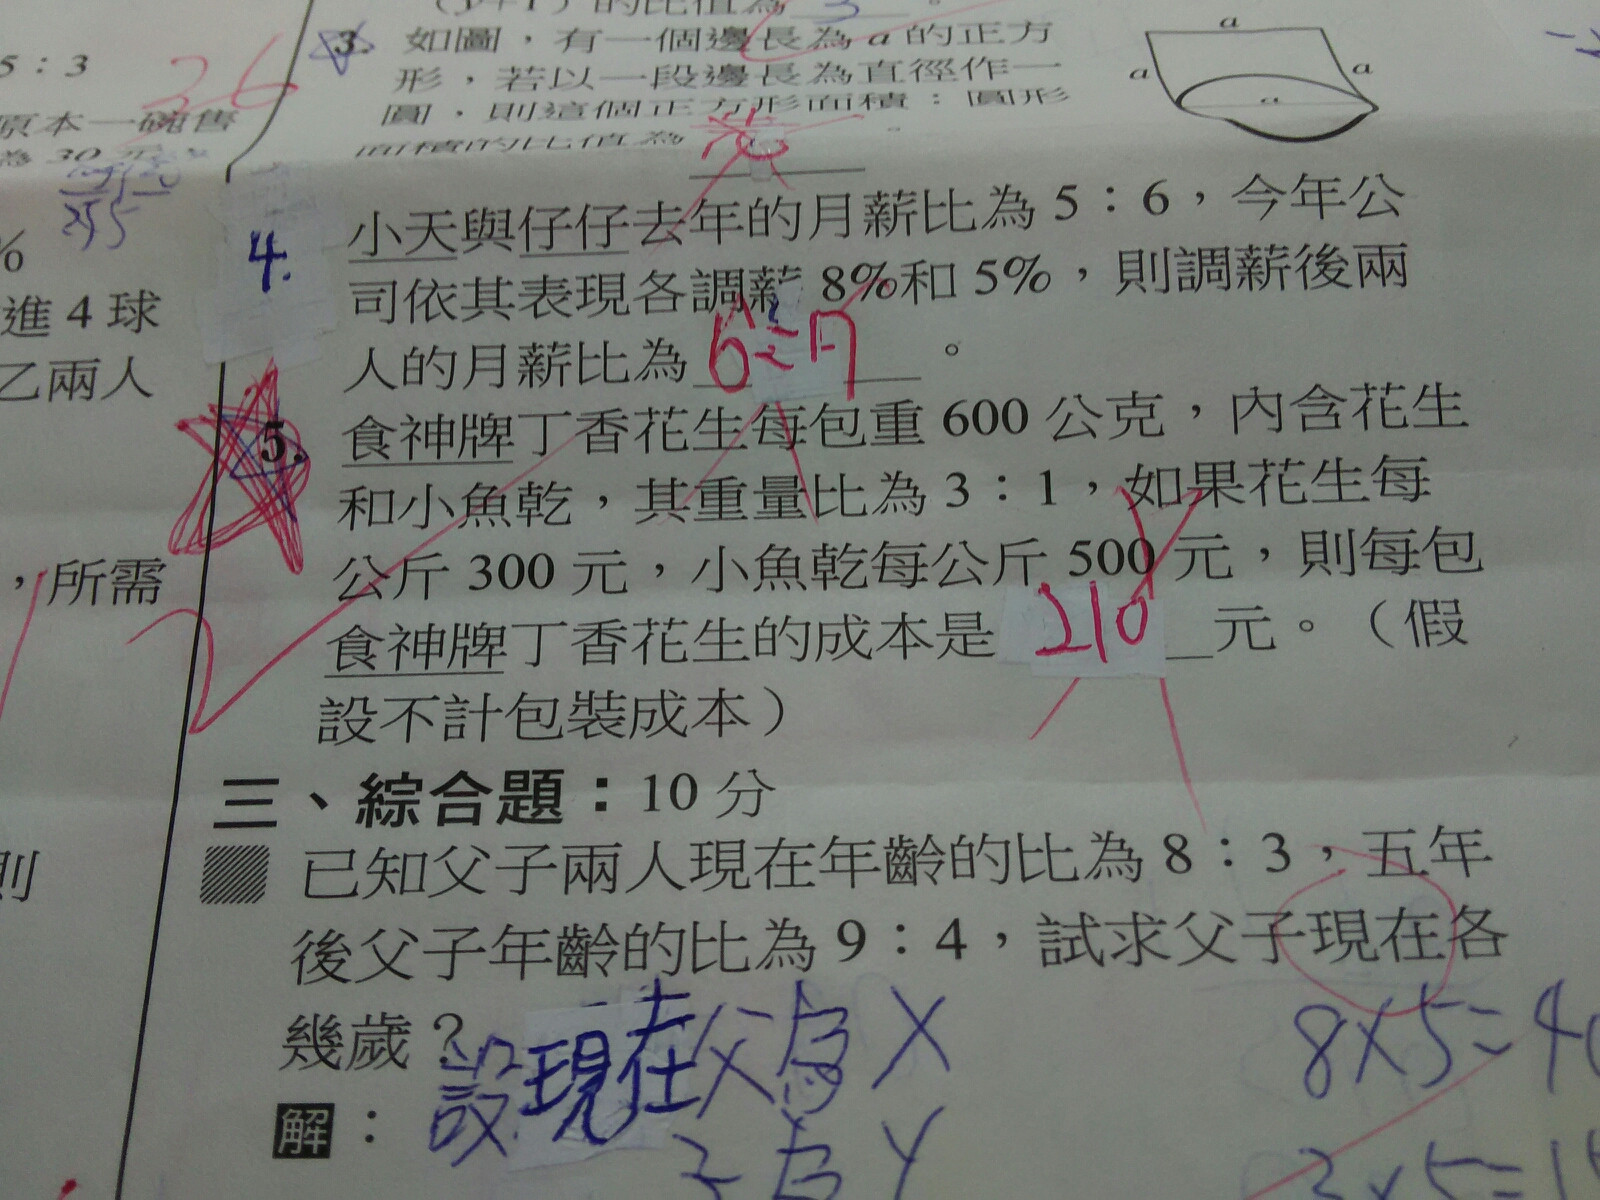 5：3
36
原本一碗售
為 30 元，
%
進 4 球
乙兩人
，所需
則
的比值為 3 。
3. 如圖，有一個邊長為 a 的正方
形，若以一段邊長為直徑作一
圓，則這個正方形面積：圓形
面積的比值為
a
a
a
a
4. 小天與仔仔去年的月薪比為 5：6，今年公
司依其表現各調薪 8%和 5%，則調薪後兩
人的月薪比為 6：7 。
5. 食神牌丁香花生每包重 600 公克，內含花生
和小魚乾，其重量比為 3：1，如果花生每
公斤 300 元，小魚乾每公斤 500 元，則每包
食神牌丁香花生的成本是 210 元。（假
設不計包裝成本）
三、綜合題：10 分
已知父子兩人現在年齡的比為 8：3，五年
後父子年齡的比為 9：4，試求父子現在各
幾歲？
解：設現在父為 X
子為 Y
8×5=40
3×5=15